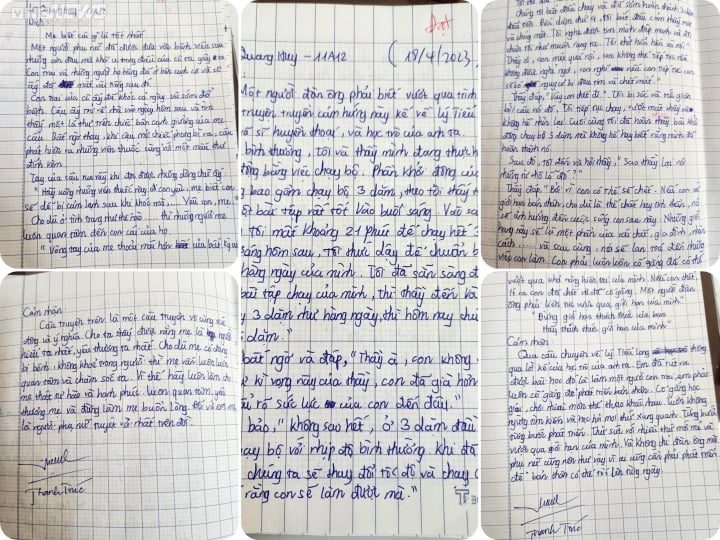 Mẹ biết cái gì là tốt nhất
Một người phụ nữ đã được đưa vào bệnh viện sau
những cơn đau mà khó cự trong đời của cô ta, giây
Con trai và những người họ hàng đã ở bên cạnh cô và cô
ấy đã mất vài tiếng sau đó.
Con trai của cô ấy đã khóc cả ngày và sớm đổ
bệnh. Cậu ấy mở về nhà vào ngày hôm sau và tìm
thấy một lá thư trên chiếc bàn cạnh giường của mẹ
cậu. Bất ngờ thay, khi cậu mở chiếc phong bì ra, cậu
phát hiện ra những viên thuốc cùng với một mẩu thư
đính kèm.
Tay của cậu run rẩy khi đọc được những dòng chữ ấy
"Hãy uống những viên thuốc này đi con yêu, mẹ biết con
sẽ dễ bị cảm lạnh sau khi khóc mà.... Vậy con, mẹ
Cho dù ở tình trạng như thế nào .... thì những người mẹ
luôn quan tâm đến con cái của họ.
"Vòng tay của mẹ thoải mái hơn của bất kỳ ai
Cảm nhận
Câu truyện trên là một câu truyện vô cùng xúc
động và ý nghĩa. Cho ta thấy được rằng mẹ là người
hiểu ta nhất, yêu thương ta nhất. Cho dù mẹ có đang
bị bệnh, không khoẻ trong người thì mẹ vẫn luôn luôn
quan tâm và chăm sóc ta. Vì thế hãy luôn làm cho
mẹ thật tự hào và hạnh phúc, luôn quan tâm, yêu
thương mẹ và đừng làm mẹ buồn lòng. Đối với em mẹ
là người phụ nữ tuyệt vời nhất trên đời.
Thanh Trúc
Đạt
Quang Huy - 11A12 (18/4/2023)
Một người đàn ông phải biết vượt qua
truyện truyền cảm hứng này kể về Lý Tiểu
"huyền thoại", và học trò của anh ta.
bình thường, tôi và thầy mình đang thực h
bằng việc chạy bộ. Phần khởi động của
bao gồm chạy bộ 3 dặm, theo tôi thấy t
ột bài tập rất tốt vào buổi sáng. Vào
tôi mất khoảng 21 phút để chạy hết 3
sáng hôm sau, tôi thức dậy để chuẩn b
hàng ngày của mình. Tôi đã sẵn sàng đ
bài tập chạy của mình, thì thầy đến và
y 3 dặm như hàng ngày, thì hôm nay chú
dặm."
bất ngờ và đáp, "Thầy à, con không
kì vọng này của thầy, con đã già hơn
rõ sức lực của con đến đâu."
bảo, "Không sao hết, ở 3 dặm đầu
ạy bộ với nhịp độ bình thường. Khi đã
chúng ta sẽ thay đổi tốc độ và chạy
rằng con sẽ làm được mà."
Chúng tôi bắt đầu chạy và đã sớm hoàn thành 3 dặm
đầu tiên. Đến dặm thứ 4, tôi bắt đầu cảm thấy mệt
và chóng mặt. Tôi nghe được tim mình đập mạnh và đôi
chân tôi như muốn rụng ra. Tôi thở hổn hển và nói,
"Thầy ơi, con mệt quá rồi, con không thể tiếp tục nếu
không được nghỉ ngơi, con nghĩ nếu con tiếp tục con
sẽ nguy cơ bị đau tim và chết mất."
Thầy đáp, "Vậy con chết đi." Tôi bị sốc và
bởi câu nói đó. Tôi tiếp tục chạy,
không hề nhìn lại. Cuối cùng tôi đã hoàn thành bài khởi
động chạy 5 dặm mà không hề hay biết rằng mình đã
hoàn thành nó.
Sau đó, tôi đến và hỏi thầy, "Sao thầy lại nói
những từ đó lúc ấy?"
Thầy đáp: "Bởi vì con có thể sẽ chết. Nếu con
giới hạn bản thân, cho dù là thể chất hay tinh thần, nó
sẽ ảnh hưởng đến cuộc sống con sau này. Những giới
hạn này sẽ là một phần của vật chất, gia đình, nhân
cách.... và sau cùng, nó sẽ lan toả đến những
việc con làm. Con phải luôn luôn cố gắng để có thể
vượt qua khả năng hiện tại của mình. Nếu con chết,
ít ra con đã chết vì đã cố gắng. Một người đàn
ông phải liên tục vượt qua giới hạn của mình"
"Đừng giới hạn thách thức của bạn
Hãy thách thức giới hạn của mình"
Cảm nhận
Qua câu chuyện về Lý Tiểu Long thông
qua lời kể của học trò của anh ta. Em đã rút ra
được bài học đó là làm một người con trai, em phải
luôn cố gắng để phát triển bản thân. Cố gắng học
giỏi, chơi nhiều môn thể thao khác nhau. Luôn không
ngừng tìm kiếm và học hỏi mọi thứ xung quanh. Từng bước
từng bước phát triển. Thử sức với nhiều thứ mới mẻ và
vượt qua giới hạn của mình. Và không chỉ đàn ông mà
phụ nữ cũng nên như vậy vì ai cũng cần phải phát triển
để bản thân có thể tốt lên từng ngày.
Thanh Trúc